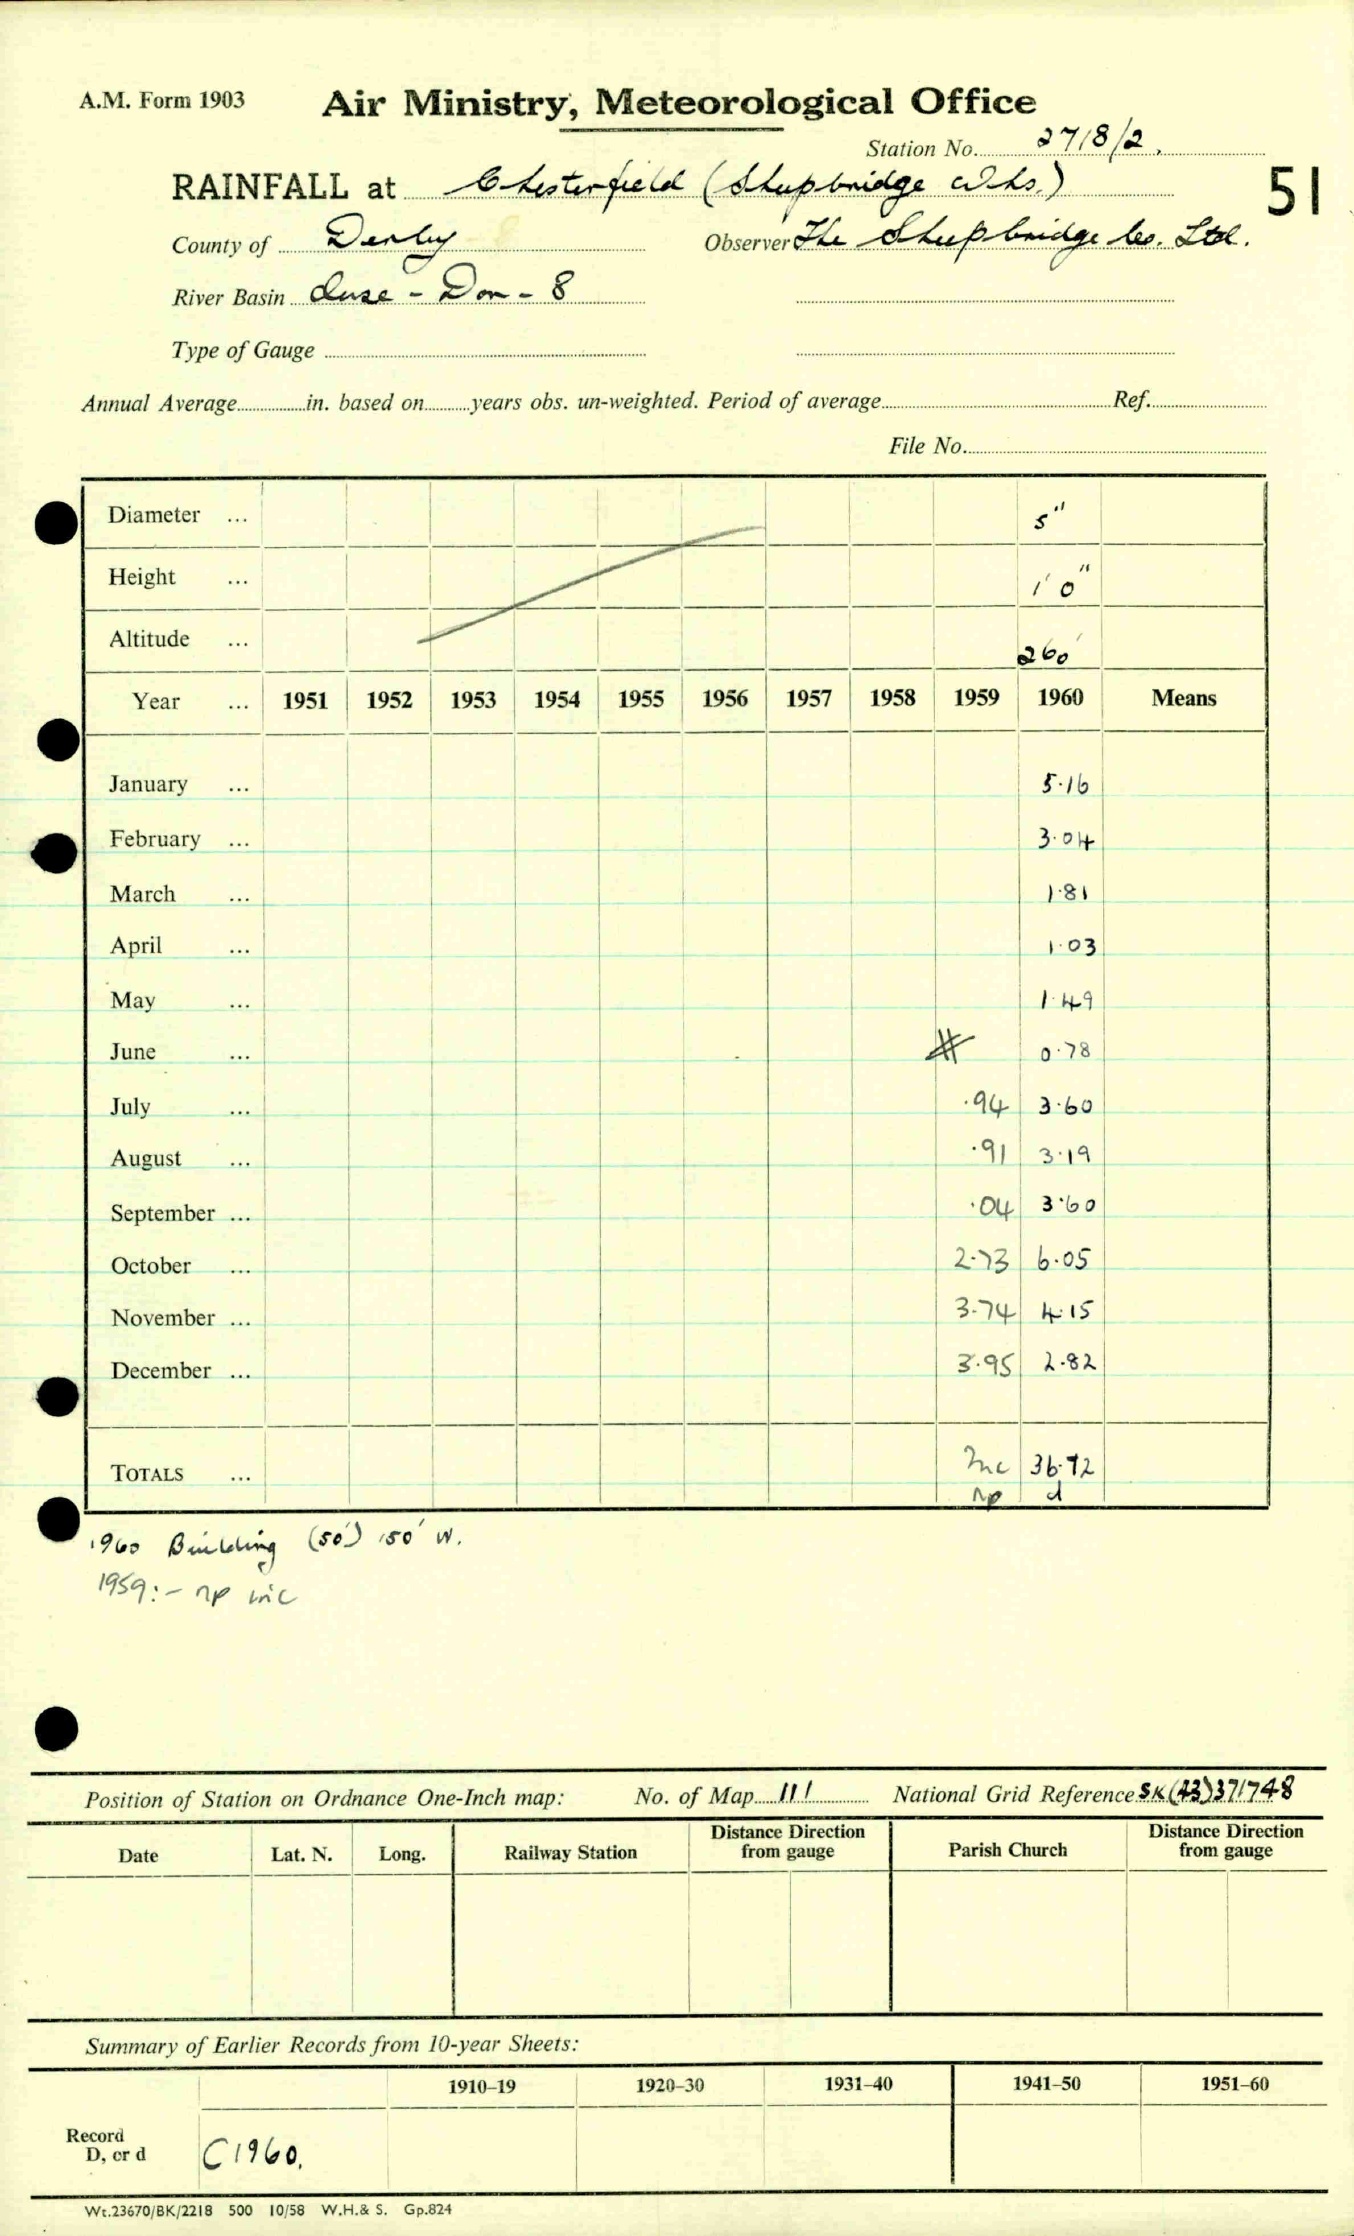 A.M. Form 1903 Air Ministry, Meteorological Office
Station No. 2718/2.
RAINFALL at Chesterfield (Sheepbridge Wks.) 51
County of Derby Observer The Sheepbridge Co. Ltd.
River Basin Ouse - Don - 8
Type of Gauge
Annual Average in. based on years obs. un-weighted. Period of average Ref.
File No.
Diameter ... 5"
Height ... 1' 0"
Altitude ... 260'
Year ... 1951 1952 1953 1954 1955 1956 1957 1958 1959 1960 Means
January ... 5.16
February ... 3.04
March ... 1.81
April ... 1.03
May ... 1.49
June ... 0.78
July ... .94 3.60
August ... .91 3.19
September ... .04 3.60
October ... 2.73 6.05
November ... 3.74 4.15
December ... 3.95 2.82
TOTALS ... Inc 36.72
np d
1960 Building (50') 150' W.
1959:- np inc
Position of Station on Ordnance One-Inch map: No. of Map 111 National Grid Reference SK(43)371748
Date Lat. N. Long. Railway Station Distance Direction from gauge Parish Church Distance Direction from gauge
Summary of Earlier Records from 10-year Sheets:
1910–19 1920–30 1931–40 1941–50 1951–60
Record
D, or d C1960.
Wt.23670/BK/2218 500 10/58 W.H.& S. Gp.824